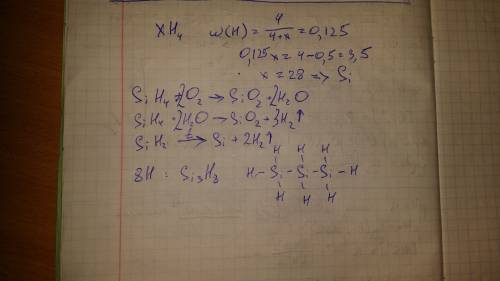 XH₄ ω(H) = 4/(4+x) = 0,125
0,125x = 4 - 0,5 = 3,5
x = 28 => Si
SiH₄ + 2O₂ → SiO₂ + 2H₂O
SiH₄ + 2H₂O → SiO₂ + 3H₂↑
SiH₂ → Si + 2H₂↑
8H : Si₃H₈
H H H
H - Si - Si - Si - H
H H H